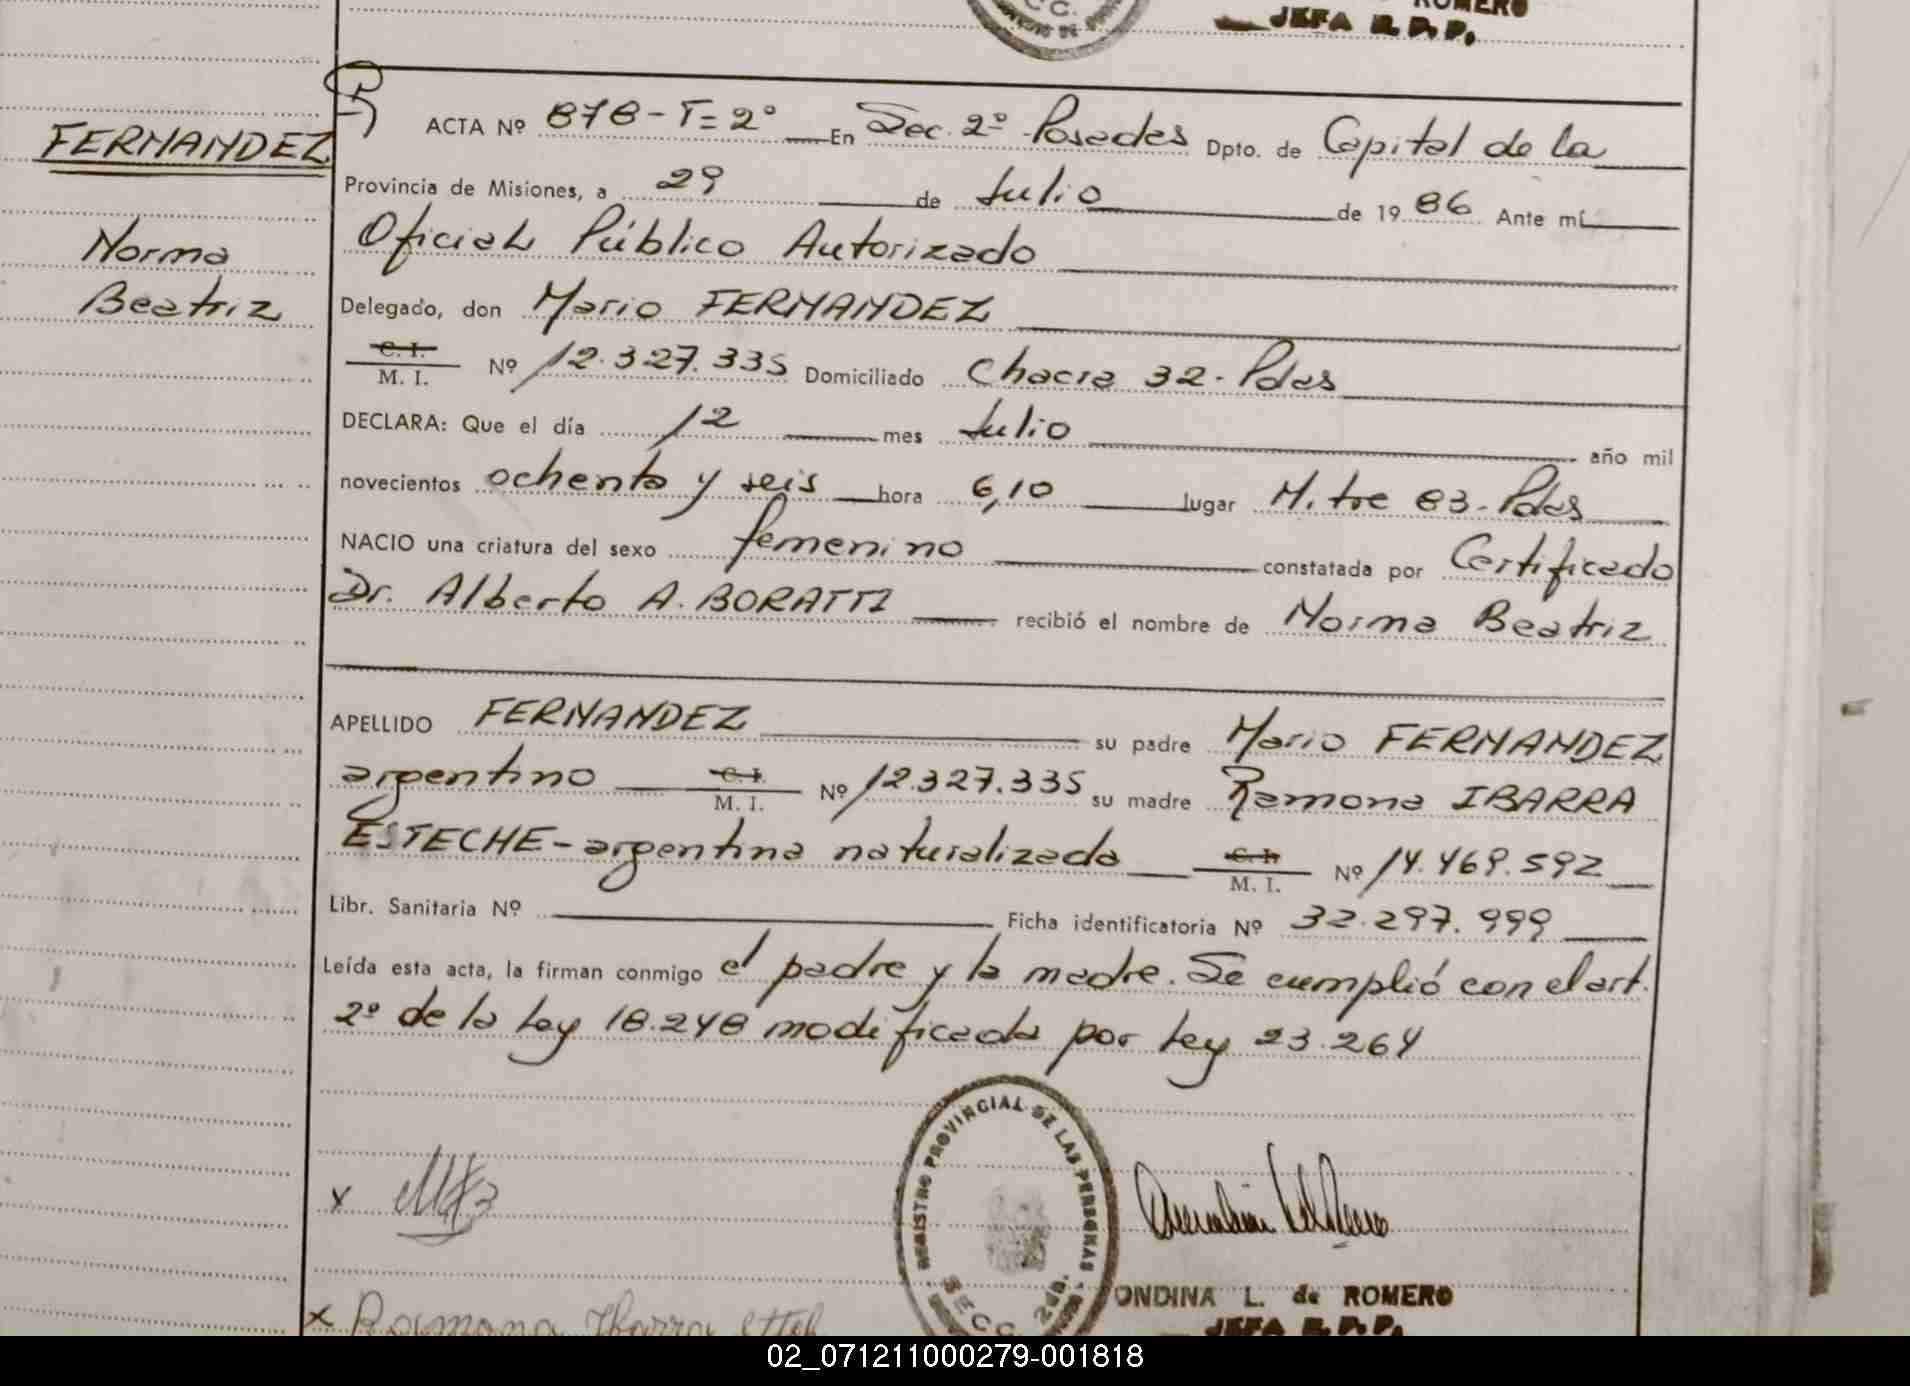 ROMERO
JEFA R.P.P.
FERNANDEZ
Norma
Beatriz
ACTA Nº 878-T=2º En Sec. 2º Posadas Dpto. de Capital de la
Provincia de Misiones, a 29 de Julio de 1986 Ante mí
Oficial Público Autorizado
Delegado, don Mario FERNANDEZ
C. I.
M. I. Nº 12.327.335 Domiciliado Chacra 32-Pdas
DECLARA: Que el día 12 mes Julio año mil
novecientos ochenta y seis hora 6,10 lugar Mitre 83-Pdas
NACIO una criatura del sexo femenino constatada por Certificado
Dr. Alberto A. BORATTI recibió el nombre de Norma Beatriz
APELLIDO FERNANDEZ su padre Mario FERNANDEZ
argentino C. I.
M. I. Nº 12.327.335 su madre Ramona IBARRA
ESTECHE-argentina naturalizada C. I.
M. I. Nº 14.469.592
Libr. Sanitaria Nº Ficha identificatoria Nº 32.297.999
Leída esta acta, la firman conmigo el padre y la madre. Se cumplió con el art.
2º de la Ley 18.248 modificada por Ley 23.264
REGISTRO PROVINCIAL DE LAS PERSONAS
SECC. 2da.
x
x Ramona Ibarra
ONDINA L. de ROMERO
JEFA R.P.P.
02_071211000279-001818